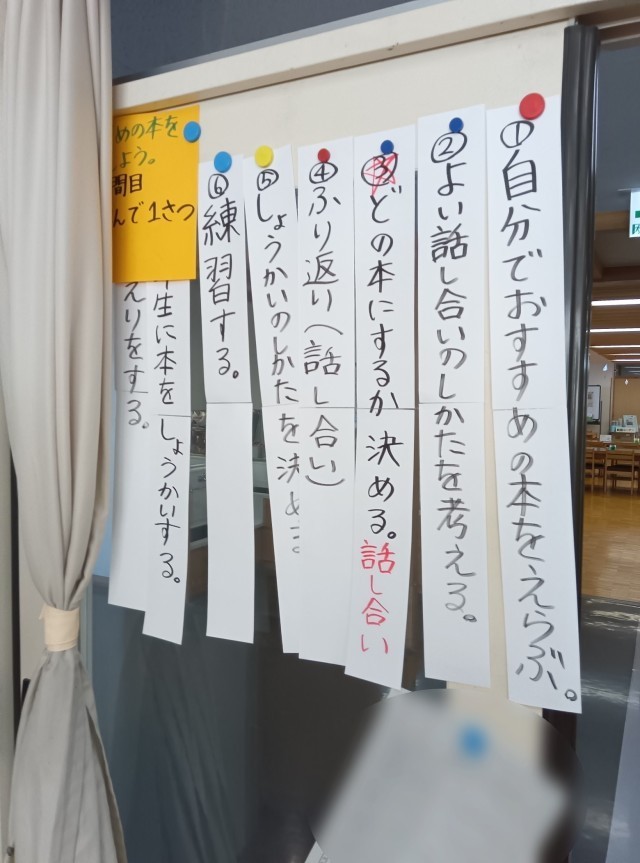 ①自分でおすすめの本をえらぶ。
②よい話し合いのしかたを考える。
③どの本にするか決める。話し合い
④ふり返り(話し合い)
⑤しょうかいのしかたを決め
⑥練習する。
生に本をしょうかいする。
えりをする。
めの本を
よう。
間目
んで1さつ